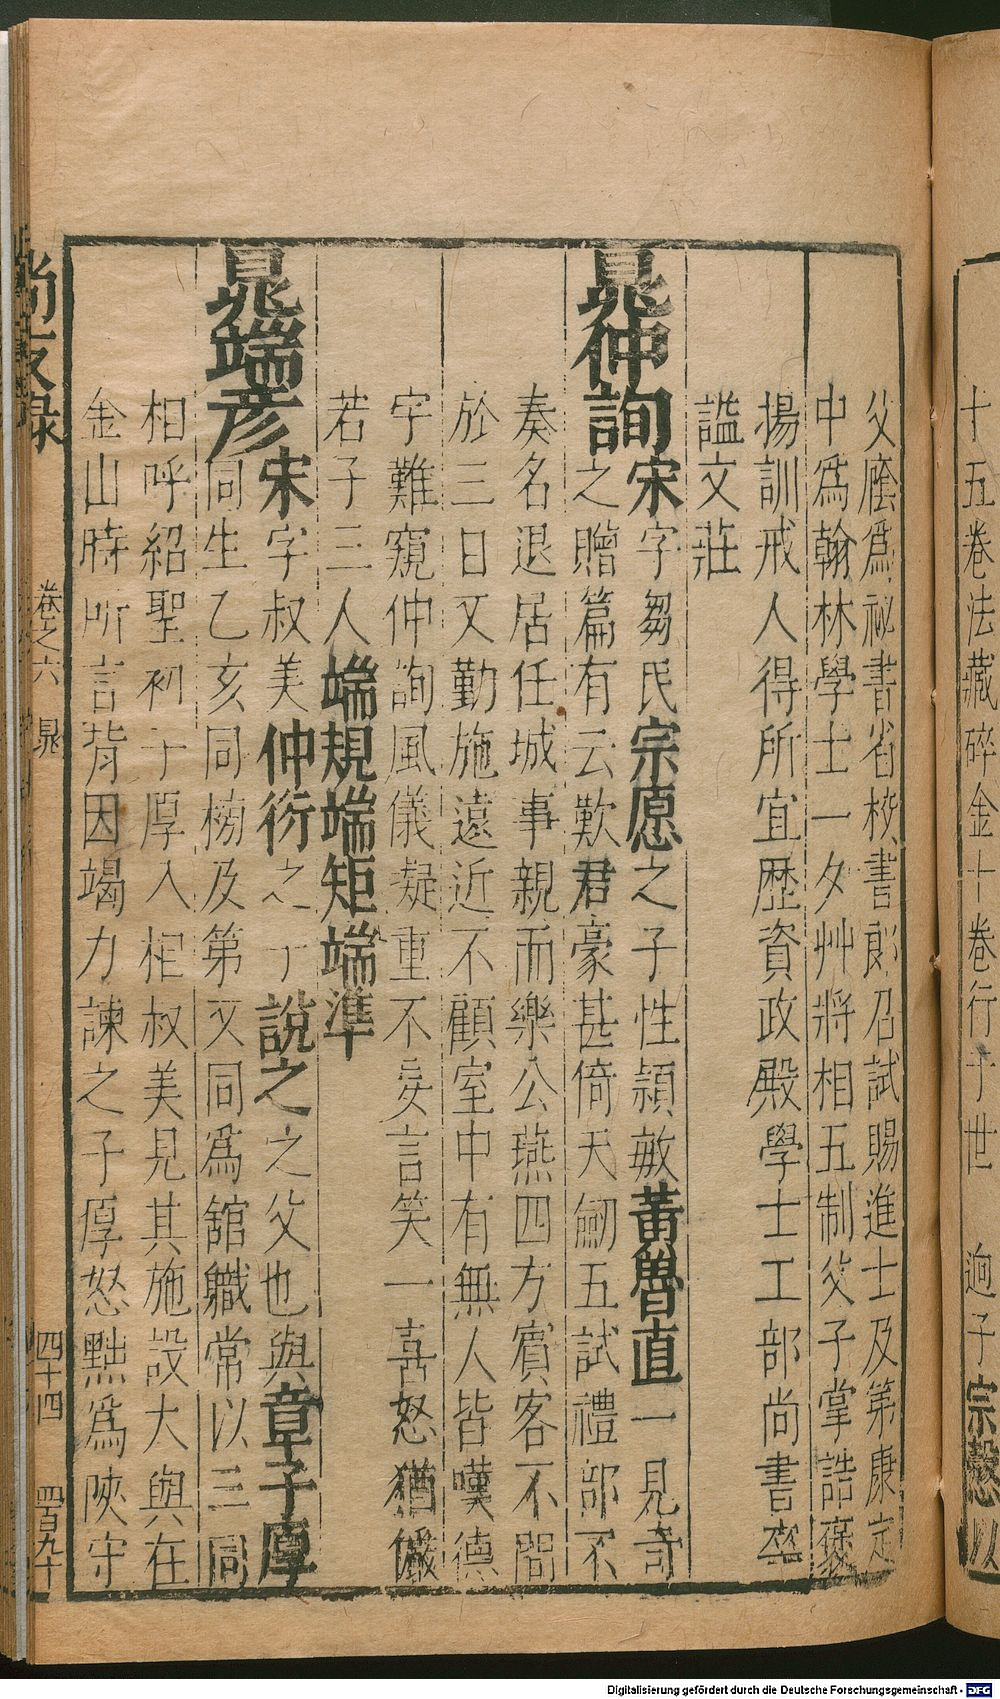 十五卷法藏碎金十卷行于世 逈子宗愨以
父廕爲祕書省校書郎召試賜進士及第康定
中爲翰林學士一夕艸將相五制父子掌誥褒
揚訓戒人得所宜歷資政殿學士工部尚書卒
謚文莊
晁仲詢宋字芻民宗愿之子性頴敏黃魯直一見奇
之贈篇有云歎君豪甚倚天劒五試禮部不
奏名退居任城事親而樂公燕四方賓客不問
於三日又勤施遠近不顧室中有無人皆嘆德
宇難窺仲詢風儀凝重不妄言笑一喜怒猶儼
若子三人端規端矩端準
晁端彥宋字叔美仲衍之子說之之父也與章子厚
同生乙亥同榜及第又同爲舘職常以三同
相呼紹聖初子厚入相叔美見其施設大與在
金山時所言背因竭力諫之子厚怒黜爲陝守
尚友錄 卷之六 晁 四十四 四百九十
Digitalisierung gefördert durch die Deutsche Forschungsgemeinschaft - DFG